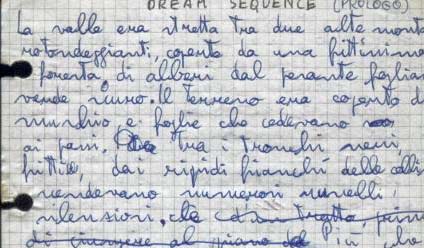 DREAM SEQUENCE (PROLOGO)
La valle era stretta tra due alte mont
rotondeggianti, coperte da una fittissima
foresta di alberi dal pesante foglia
verde scuro. Il terreno era coperto d
muschio e foglie che cedevano
ai passi. tra i tronchi neri,
fittie, dai ripidi fianchi delle colli
scendevano numerosi ruscelli,
silenziosi, che tratto, prim
di giungere al piano Più che